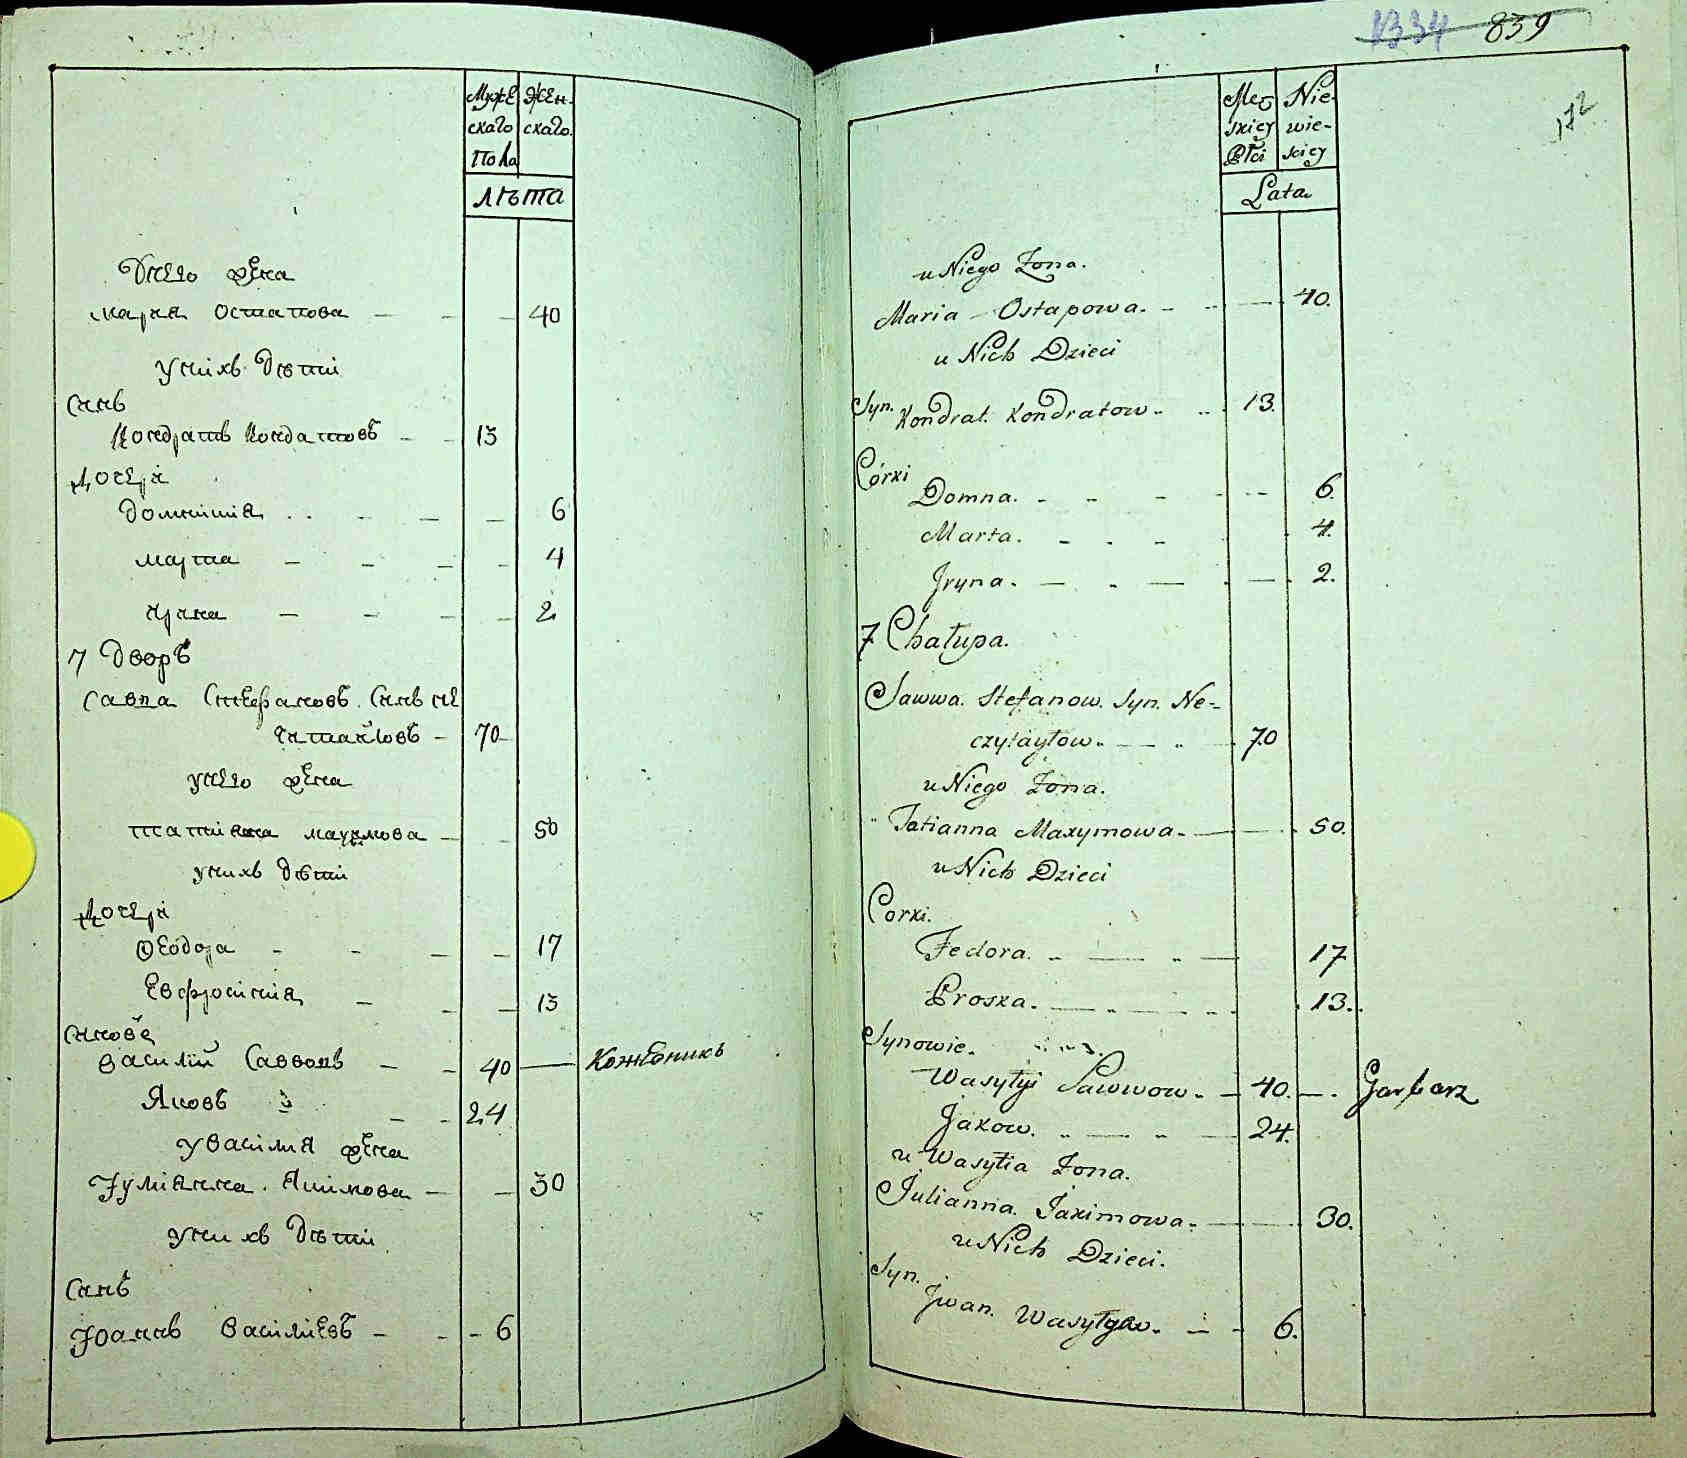 Муже Жен-
скаго скаго.
Пола
лѣта
Унего жена
Мария Остапова - - - 40
Унихъ Дѣти
Синъ
Кондратъ Кондатовъ - - 13
Дочери
Домникия . . - - - 6
Марта - - - - 4
Ирина - - - - 2
7 Дворъ
Савва Стефановъ Синъ Не
читайловъ - 70
Унего жена
Татияна Мауимова - - 50
Унихъ Дѣти
Дочери
Ѳеодора - - - - 17
Евфросиния - - - 13
Синове
Василий Саввовъ - - 40 — Кожевникъ
Яковъ - - 24
У Василия жена
Іулиянна Якимова - - 30
Унихъ Дѣти
Синъ
Іоаннъ Василиевъ - - - 6
1334 839
172
Męz Nie-
skiey wie-
Płci skiey
Lata
u Niego Żona.
Maria - Ostapowa. - - — 40.
u Nich Dzieci
Syn. Kondrat. Kondratow - - 13.
Córki
Domna. - - - - - 6.
Marta. - - - - 4.
Jryna. — - — - — - 2.
7 Chałupa.
Sawwa. Stefanow. Syn. Ne-
czytaytow. — - — 70
u Niego Żona.
Tatianna Maxymowa. — — - 50.
u Nich Dzieci
Corki.
Fedora. - — - — 17
Proska. - — - - - - 13.
Synowie.
Wasyłyi Sawwow. — 40. — . Garbarz
Jakow. - — - — 24.
u Wasyłia Żona.
Julianna. Jakimowa. — — 30.
u Nich Dzieci.
Syn.
Jwan. Wasyłyow. - - 6.